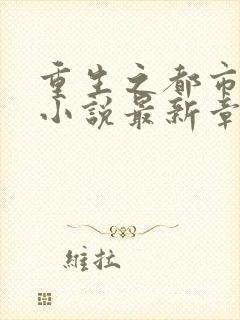 重生之都市
小說最新章
維拉